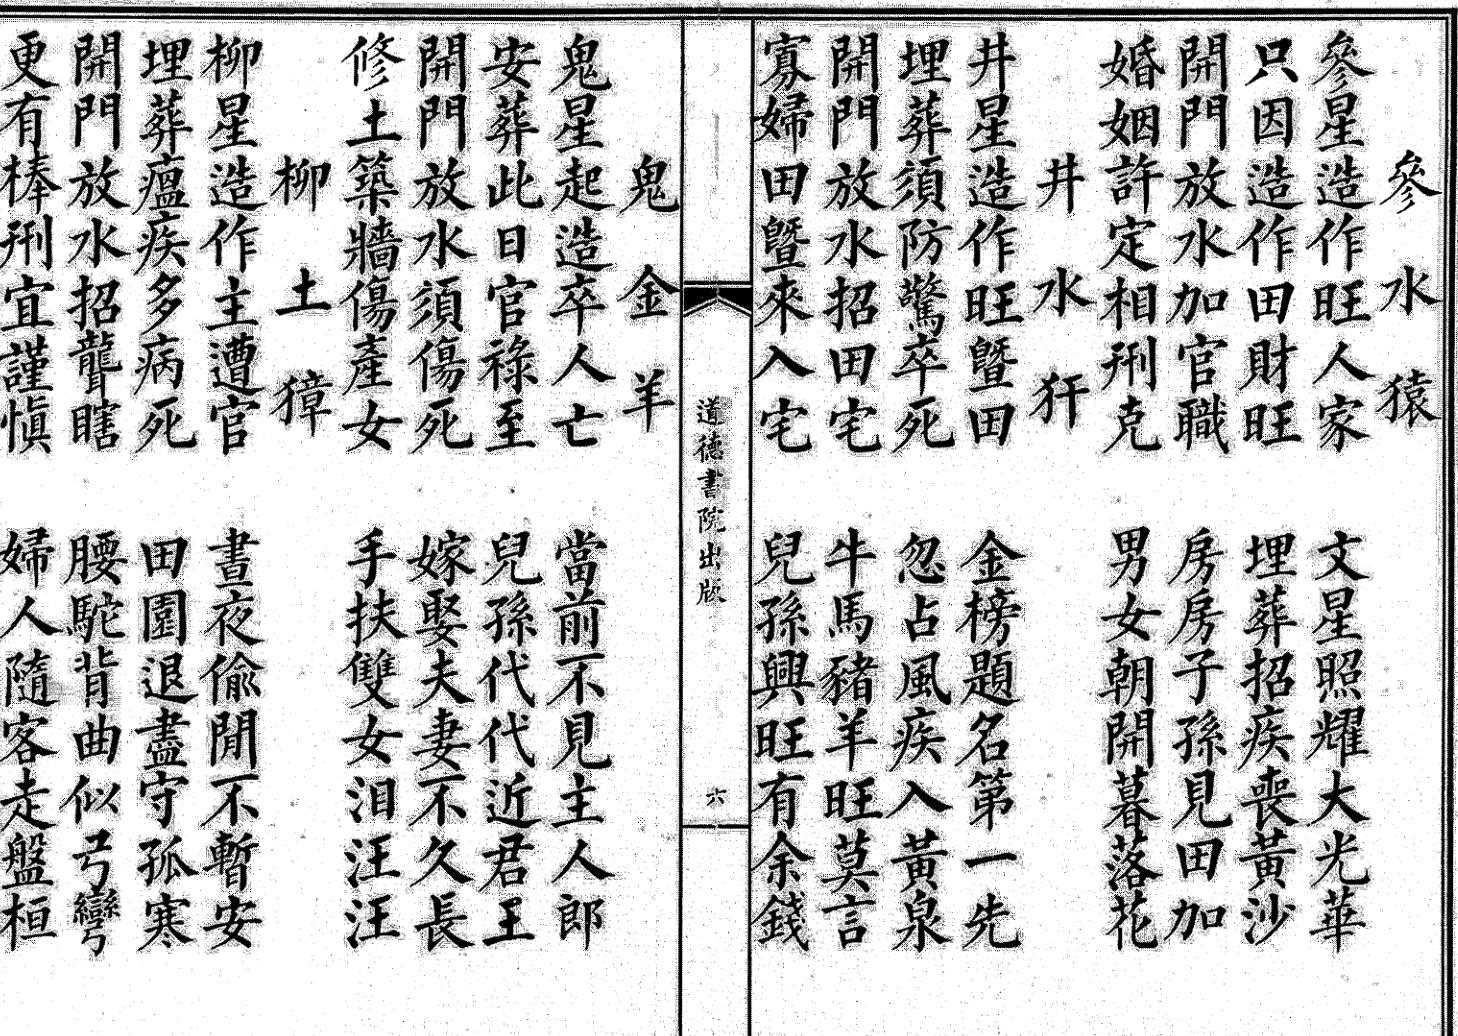 參水猿
參星造作旺人家 文星照耀大光華
只因造作田財旺 埋葬招疾喪黃沙
開門放水加官職 房房子孫見田加
婚姻許定相刑克 男女朝開暮落花
井水犴
井星造作旺暨田 金榜題名第一先
埋葬須防驚卒死 忽占風疾入黃泉
開門放水招田宅 牛馬豬羊旺莫言
寡婦田暨來入宅 兒孫興旺有余錢
道德書院出版
六
鬼金羊
鬼星起造卒人亡 當前不見主人郎
安葬此日官祿至 兒孫代代近君王
開門放水須傷死 嫁娶夫妻不久長
修土築牆傷產女 手扶雙女泪汪汪
柳土獐
柳星造作主遭官 晝夜偷閒不暫安
埋葬瘟疾多病死 田園退盡守孤寒
開門放水招聾瞎 腰駝背曲似弓彎
更有棒刑宜謹慎 婦人隨客走盤桓